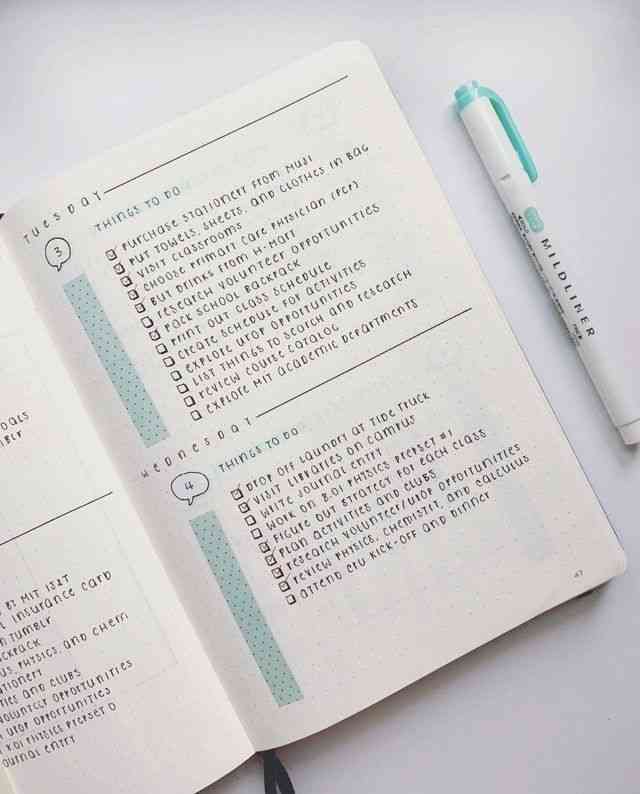 OALS
BLR
MIT IS&T
INSURANCE CARD
TUMBLR
CKPACK
US PHYSICS, AND CHEM
TIONERY
TIES AND CLUBS
VOLUNTEER OPPORTUNITIES
UROP OPPORTUNITIES
8.01 PHYSICS PREPSET 0
OURNAL ENTRY
TUESDAY
3
THINGS TO DO
PURCHASE STATIONERY FROM MUJI
PUT TOWELS, SHEETS, AND CLOTHES IN BAG
VISIT CLASSROOMS
CHOOSE PRIMARY CARE PHYSICIAN (PCP)
BUY DRINKS FROM H-MART
RESEARCH VOLUNTEER OPPORTUNITIES
PACK SCHOOL BACKPACK
PRINT OUT CLASS SCHEDULE
CREATE SCHEDULE FOR ACTIVITIES
EXPLORE UROP OPPORTUNITIES
LIST THINGS TO SEARCH AND RESEARCH
REVIEW COURSE CATALOG
EXPLORE MIT ACADEMIC DEPARTMENTS
WEDNESDAY
4
THINGS TO DO
DROP OFF LAUNDRY AT TIDE TRUCK
VISIT LIBRARIES ON CAMPUS
WRITE JOURNAL ENTRY
WORK ON 8.01 PHYSICS PREPSET #1
FIGURE OUT STRATEGY FOR EACH CLASS
PLAN ACTIVITIES AND CLUBS
RESEARCH VOLUNTEER/UROP OPPORTUNITIES
REVIEW PHYSICS, CHEMISTRY, AND CALCULUS
ATTEND CRU KICK-OFF AND DINNER
47
MILDLINER